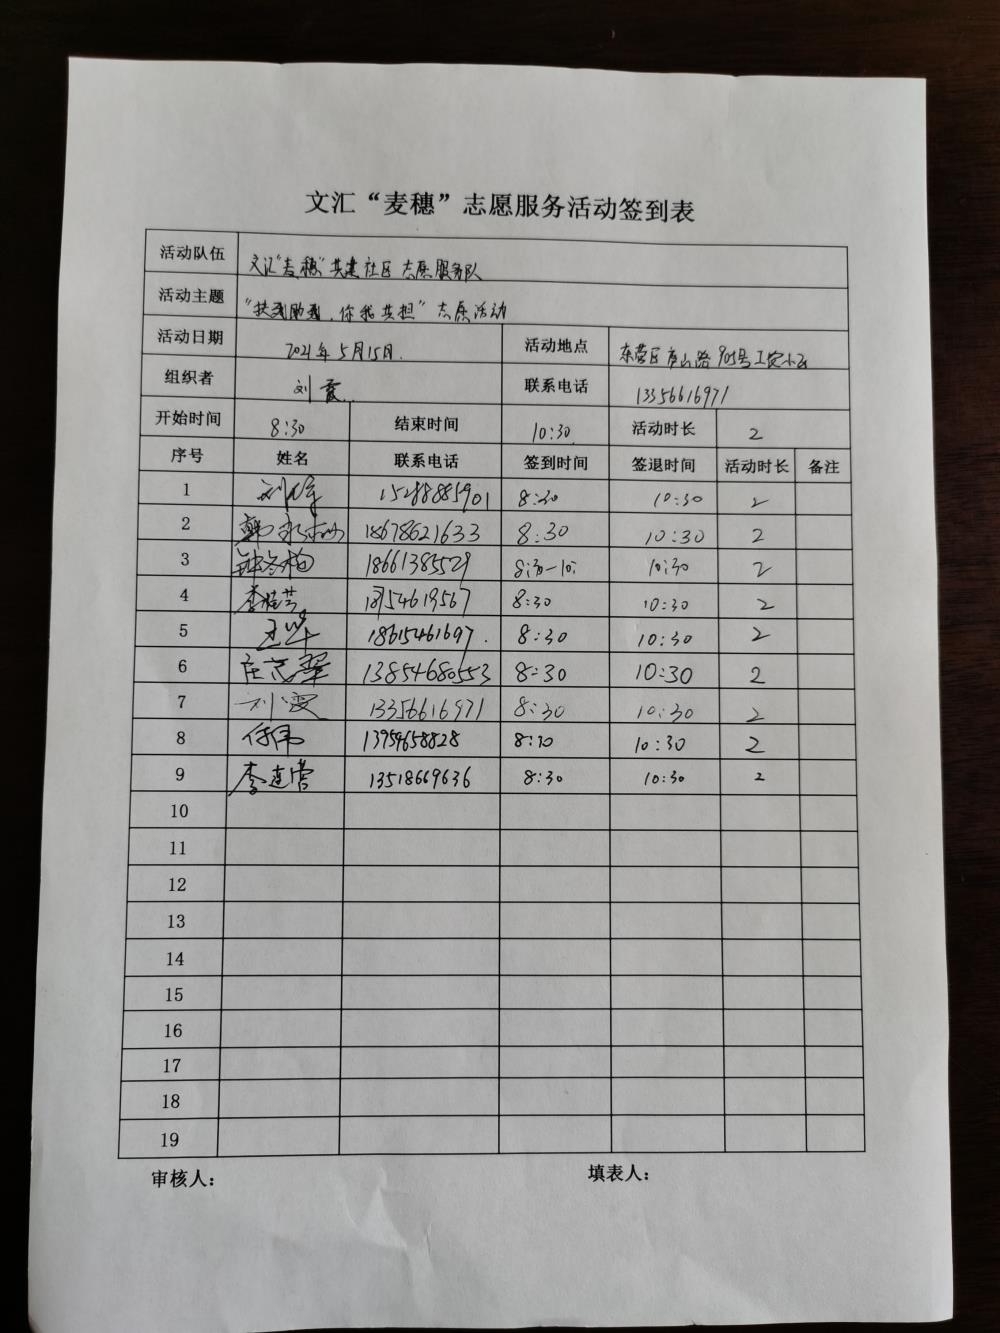 文汇“麦穗”志愿服务活动签到表
活动队伍 文汇“麦穗”共建社区志愿服务队
活动主题 “扶残助残，你我共担”志愿活动
活动日期 2021年5月15日. 活动地点 东营区 山路905号工
组织者 刘霞 联系电话 13356616971
开始时间 8:30 结束时间 10:30 活动时长 2
序号 姓名 联系电话 签到时间 签退时间 活动时长 备注
1 刘 15288885901 8:30 10:30 2
2 韩永 18678621633 8:30 10:30 2
3 钟冬梅 18661385529 8:30-10: 10:30 2
4 李桂芳 18754619567 8:30 10:30 2
5 王华 18615461697. 8:30 10:30 2
6 翠 13854680553 8:30 10:30 2
7 刘霞 13356616971 8:30 10:30 2
8 任伟 13954658828 8:30 10:30 2
9 李连营 13518669636 8:30 10:30 2
10
11
12
13
14
15
16
17
18
19
审核人： 填表人：